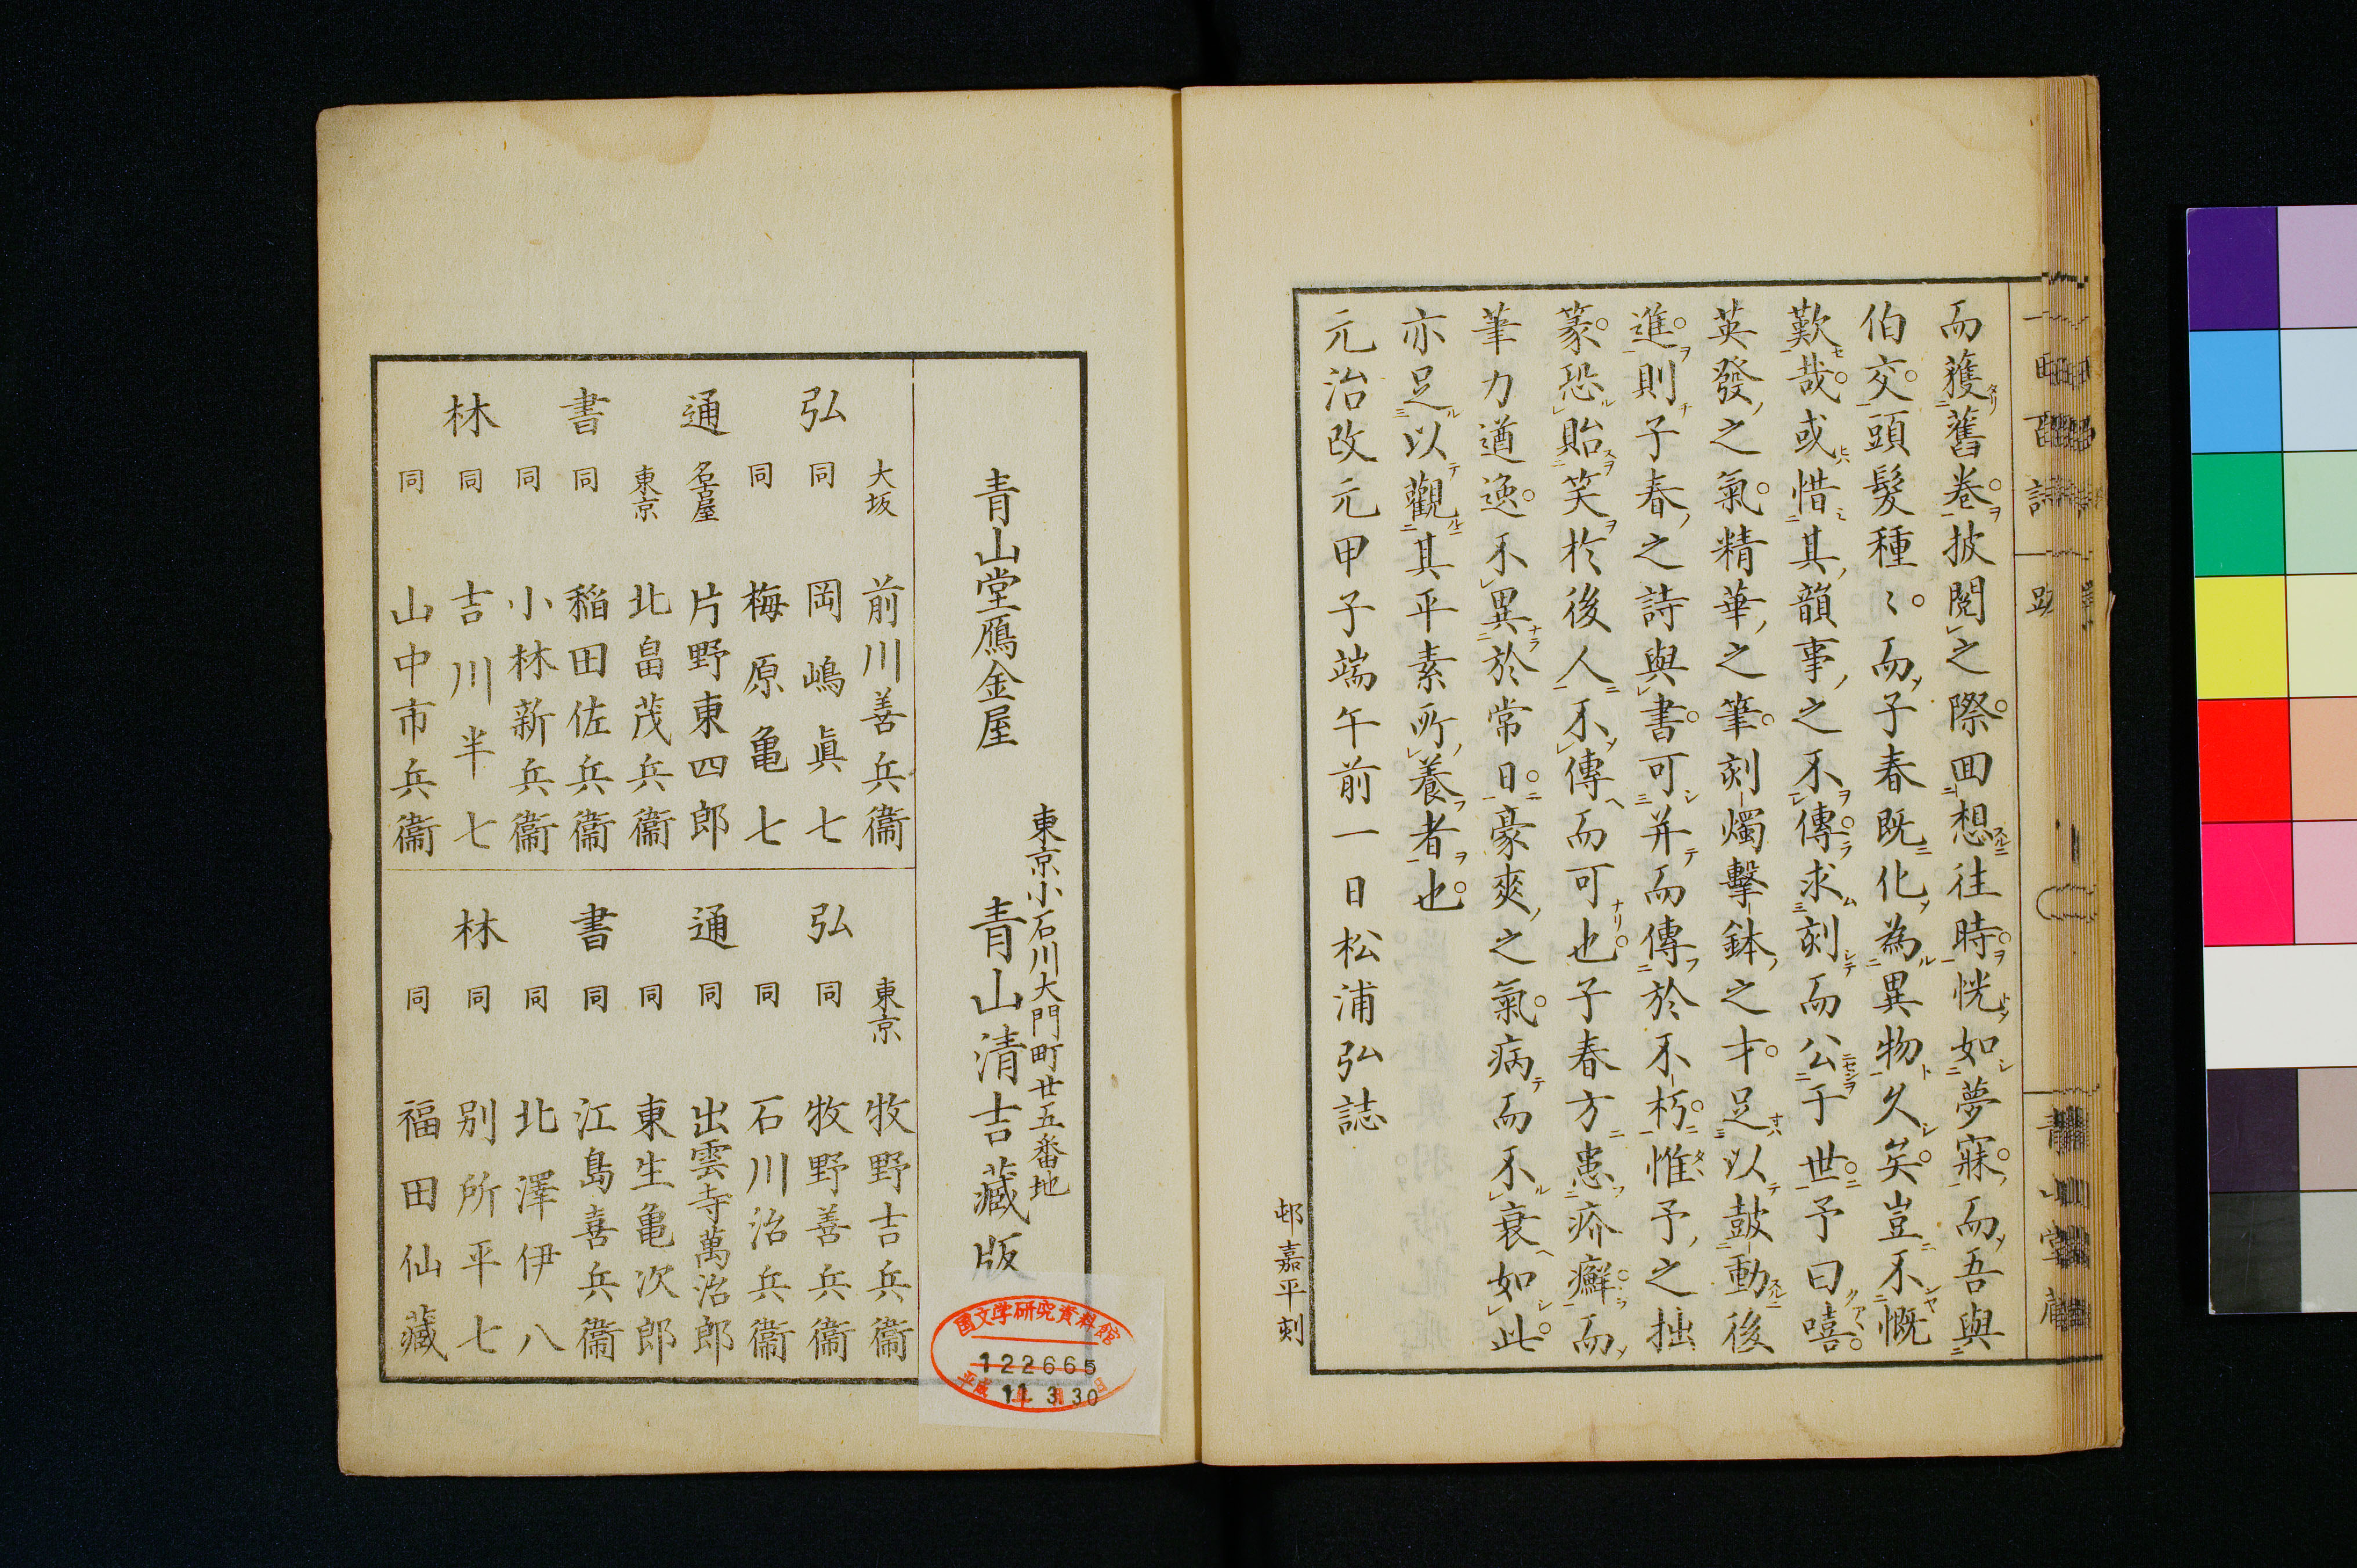 而獲舊卷披閱之際回想往時恍如夢寐而吾與
伯交頭髮種〻而子春既化為異物久矣豈不慨
歎哉或惜其韻事之不傳求刻而公于世予曰嘻
英發之氣精華之筆刻燭擊鉢之才足以鼓動後
進則子春之詩與書可并而傳於不朽惟予之拙
篆恐貽笑於後人不傳而可也子春方患疥癬而
筆力遒逸不異於常日豪爽之氣病而不衰如此
亦足以觀其平素所養者也
元治改元甲子端午前一日松浦弘誌
邨嘉平刻
東京小石川大門町廿五番地
青山堂鴈金屋 青山清吉藏版
弘通書林
大坂 前川善兵衞
同 岡嶋眞七
同 梅原亀七
名古屋 片野東四郎
東京 北畠茂兵衞
同 稲田佐兵衞
同 小林新兵衞
同 吉川半七
同 山中市兵衞
弘通書林
東京 牧野吉兵衞
同 牧野善兵衞
同 石川治兵衞
同 出雲寺萬治郎
同 東生亀次郎
同 江島喜兵衞
同 北澤伊八
同 別所平七
同 福田仙藏
国文学研究資料館
122665
平成 11 3 30